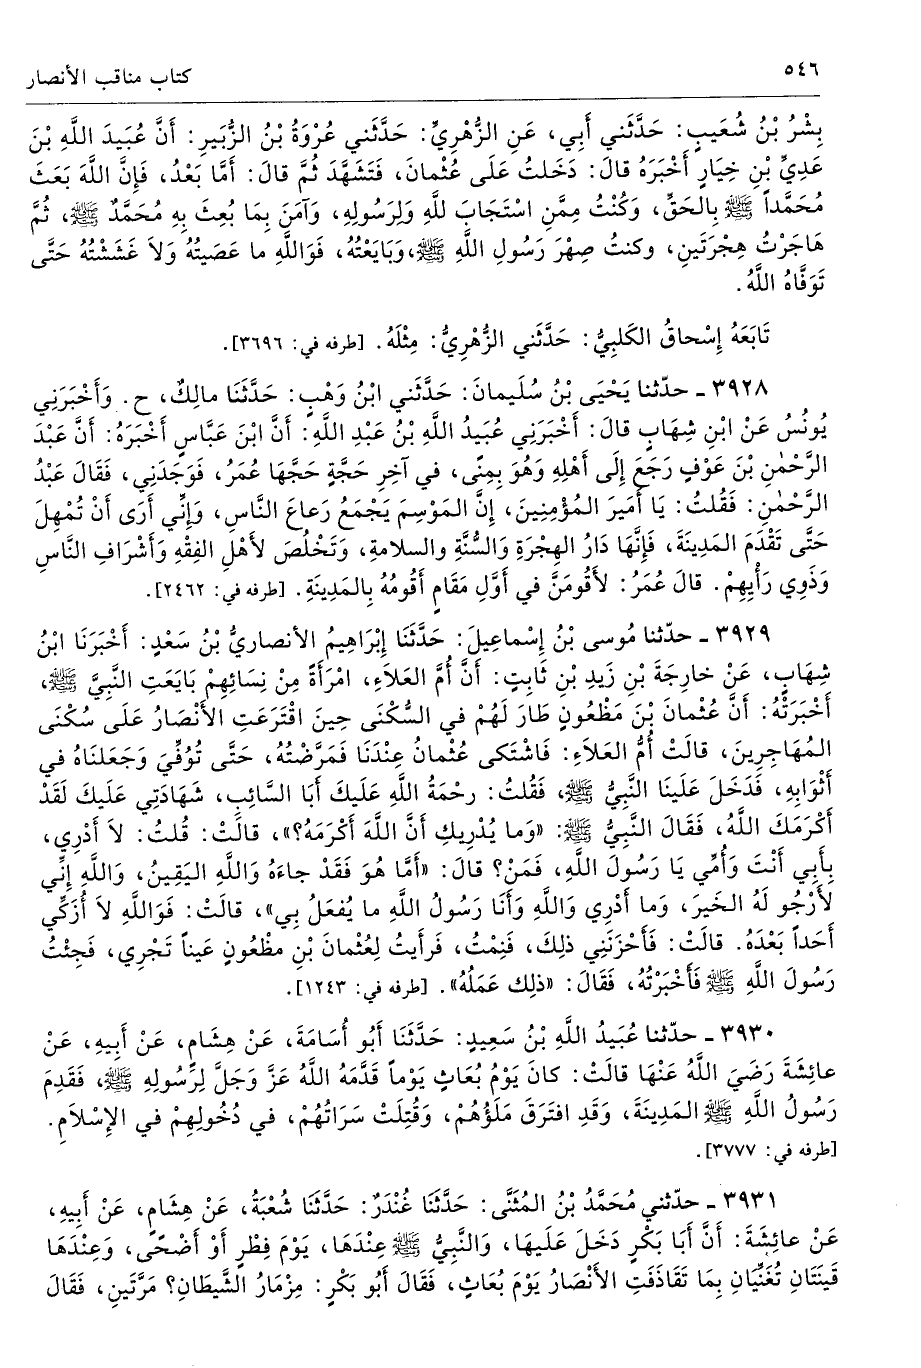 ٥٤٦
كتاب مناقب الأنصار
بِشْرُ بْنُ شُعَيبٍ: حَدَّثَني أَبِي، عَنِ الزُّهْرِيِّ: حَدَّثَني عُرْوَةُ بْنُ الزُّبَيرِ: أَنَّ عُبَيدَ اللَّهِ بْنَ
عَدِيِّ بْنِ خِيَارٍ أَخْبَرَهُ قالَ: دَخَلتُ عَلَى عُثْمانَ، فَتَشَهَّدَ ثُمَّ قالَ: أَمَّا بَعْدُ، فَإِنَّ اللَّهَ بَعَثَ
مُحَمَّداً ﷺ بِالحَقِّ، وَكُنْتُ مِمَّنِ اسْتَجَابَ للَّهِ وَلِرَسُولِهِ، وَآمَنَ بِمَا بُعِثَ بِهِ مُحَمَّدٌ ﷺ، ثُمَّ
هَاجَرْتُ هِجْرَتَينِ، وكنتُ صِهْرَ رَسُولِ اللَّهِ ﷺ،وَبَايَعْتُهُ، فَوَاللَّهِ ما عَصَيتُهُ وَلاَ غَشَشْتُهُ حَتَّى
تَوَفَّاهُ اللَّهُ.
تَابَعَهُ إِسْحاقُ الكَلبِيُّ: حَدَّثَني الزُّهْرِيُّ: مِثْلَهُ. [طرفه في: ٣٦٩٦].
٣٩٢٨ ـ حدّثنا يَحْيَى بْنُ سُلَيمانَ: حَدَّثَني ابْنُ وَهْبٍ: حَدَّثَنَا مالِكٌ، ح. وَأَخْبَرَنِي
يُونُسُ عَنْ ابْنِ شِهَابٍ قالَ: أَخْبَرَنِي عُبَيدُ اللَّهِ بْنُ عَبْدِ اللَّهِ: أَنَّ ابْنَ عَبَّاسٍ أَخْبَرَهُ: أَنَّ عَبْدَ
الرَّحْمٰنِ بْنَ عَوْفٍ رَجَعَ إِلَى أَهْلِهِ وَهُوَ بِمِنًى، في آخِرِ حَجَّةٍ حَجَّهَا عُمَرُ، فَوَجَدَنِي، فَقَالَ عَبْدُ
الرَّحْمٰنِ: فَقُلتُ: يَا أَمِيرَ المُؤْمِنِينَ، إِنَّ المَوْسِمَ يَجْمَعُ رَعاعَ النَّاسِ، وَإِنِّي أَرَى أَنْ تُمْهِلَ
حَتَّى تَقْدَمَ المَدِينَةَ، فَإِنَّهَا دَارُ الهِجْرَةِ وَالسُّنَّةِ والسلامةِ، وَتَخْلُصَ لأَهْلِ الفِقْهِ وَأَشْرَافِ النَّاسِ
وَذَوِي رَأْيِهِمْ. قالَ عُمَرُ: لأَقُومَنَّ في أَوَّلِ مَقَامٍ أَقُومُهُ بِالمَدِينَةِ. [طرفه في: ٢٤٦٢].
٣٩٢٩ ـ حدّثنا مُوسى بْنُ إِسْماعِيلَ: حَدَّثَنَا إِبْرَاهِيمُ الأنصاريُّ بْنُ سَعْدٍ: أَخْبَرَنَا ابْنُ
شِهَابٍ، عَنْ خارِجَةَ بْنِ زَيدِ بْنِ ثَابِتٍ: أَنَّ أُمَّ العَلاَءِ، امْرَأَةً مِنْ نِسَائِهِمْ بَايَعَتِ النَّبِيَّ ﷺ،
أَخْبَرَتْهُ: أَنَّ عُثْمانَ بْنَ مَظْعُونٍ طَارَ لَهُمْ في السُّكْنَى حِينَ اقْتَرَعَتِ الأَنْصَارُ عَلَى سُكْنَى
المُهَاجِرِينَ، قالَتْ أُمُّ العَلاَءِ: فَاشْتَكى عُثْمانُ عِنْدَنَا فَمَرَّضْتُهُ، حَتَّى تُوُفِّيَ وَجَعَلنَاهُ في
أَثْوَابِهِ، فَدَخَلَ عَلَينَا النَّبِيُّ ﷺ، فَقُلتُ: رحْمَةُ اللَّهِ عَلَيكَ أَبَا السَّائِبِ، شَهَادَتِي عَلَيكَ لَقَدْ
أَكْرَمَكَ اللَّهُ، فَقَالَ النَّبِيُّ ﷺ: «وَما يُدْرِيكِ أَنَّ اللَّهَ أَكْرَمَهُ؟»، قالَتْ: قُلتُ: لاَ أَدْرِي،
بِأَبِي أَنْتَ وَأُمِّي يَا رَسُولَ اللَّهِ، فَمَنْ؟ قالَ: «أَمَّا هُوَ فَقَدْ جاءَهُ وَاللَّهِ اليَقِينُ، وَاللَّهِ إِنِّي
لأَرْجُو لَهُ الخَيرَ، وَما أَدْرِي وَاللَّهِ وَأَنَا رَسُولُ اللَّهِ ما يُفعَلُ بِي»، قالَتْ: فَوَاللَّهِ لاَ أُزَكِّي
أَحَداً بَعْدَهُ. قالَتْ: فَأَحْزَنَنِي ذلِكَ، فَنِمْتُ، فَرأَيتُ لِعُثْمانَ بْنِ مظْعُونٍ عَيناً تَجْرِي، فَجِئْتُ
رَسُولَ اللَّهِ ﷺ فَأَخْبَرْتُهُ، فَقَالَ: «ذلِك عَمَلُهُ». [طرفه في: ١٢٤٣].
٣٩٣٠ ـ حدّثنا عُبَيدُ اللَّهِ بْنُ سَعِيدٍ: حَدَّثَنَا أَبُو أُسَامَةَ، عَنْ هِشَامٍ، عَنْ أَبِيهِ، عَنْ
عائِشَةَ رَضِيَ اللَّهُ عَنْهَا قالَتْ: كانَ يَوْمُ بُعَاثٍ يَوْماً قَدَّمَهُ اللَّهُ عَزَّ وَجَلَّ لِرَسُولِهِ ﷺ، فَقَدِمَ
رَسُولُ اللَّهِ ﷺ المَدِينَةَ، وَقَدِ افتَرَقَ مَلَؤُهُمْ، وَقُتِلَتْ سَرَاتُهُمْ، في دُخُولِهِمْ في الإِسْلاَمِ.
[طرفه في: ٣٧٧٧].
٣٩٣١ ـ حدّثني مُحَمَّدُ بْنُ المُثَنَّى: حَدَّثَنَا غُنْدَرٌ: حَدَّثَنَا شُعْبَةُ، عَنْ هِشَامٍ، عَنْ أَبِيهِ،
عَنْ عائِشَةَ: أَنَّ أَبَا بَكْرٍ دَخَلَ عَلَيهَا، وَالنَّبِيُّ ﷺ عِنْدَهَا، يَوْمَ فِطْرٍ أَوْ أَضْحًى، وَعِنْدَهَا
قَينَتَانِ تُغَنِّيَانِ بِمَا تَقَاذَفَتِ الأَنْصَارُ يَوْمَ بُعَاثٍ، فَقَالَ أَبُو بَكْرٍ: مِزْمَارُ الشَّيطَانِ؟ مَرَّتَينِ، فَقَالَ